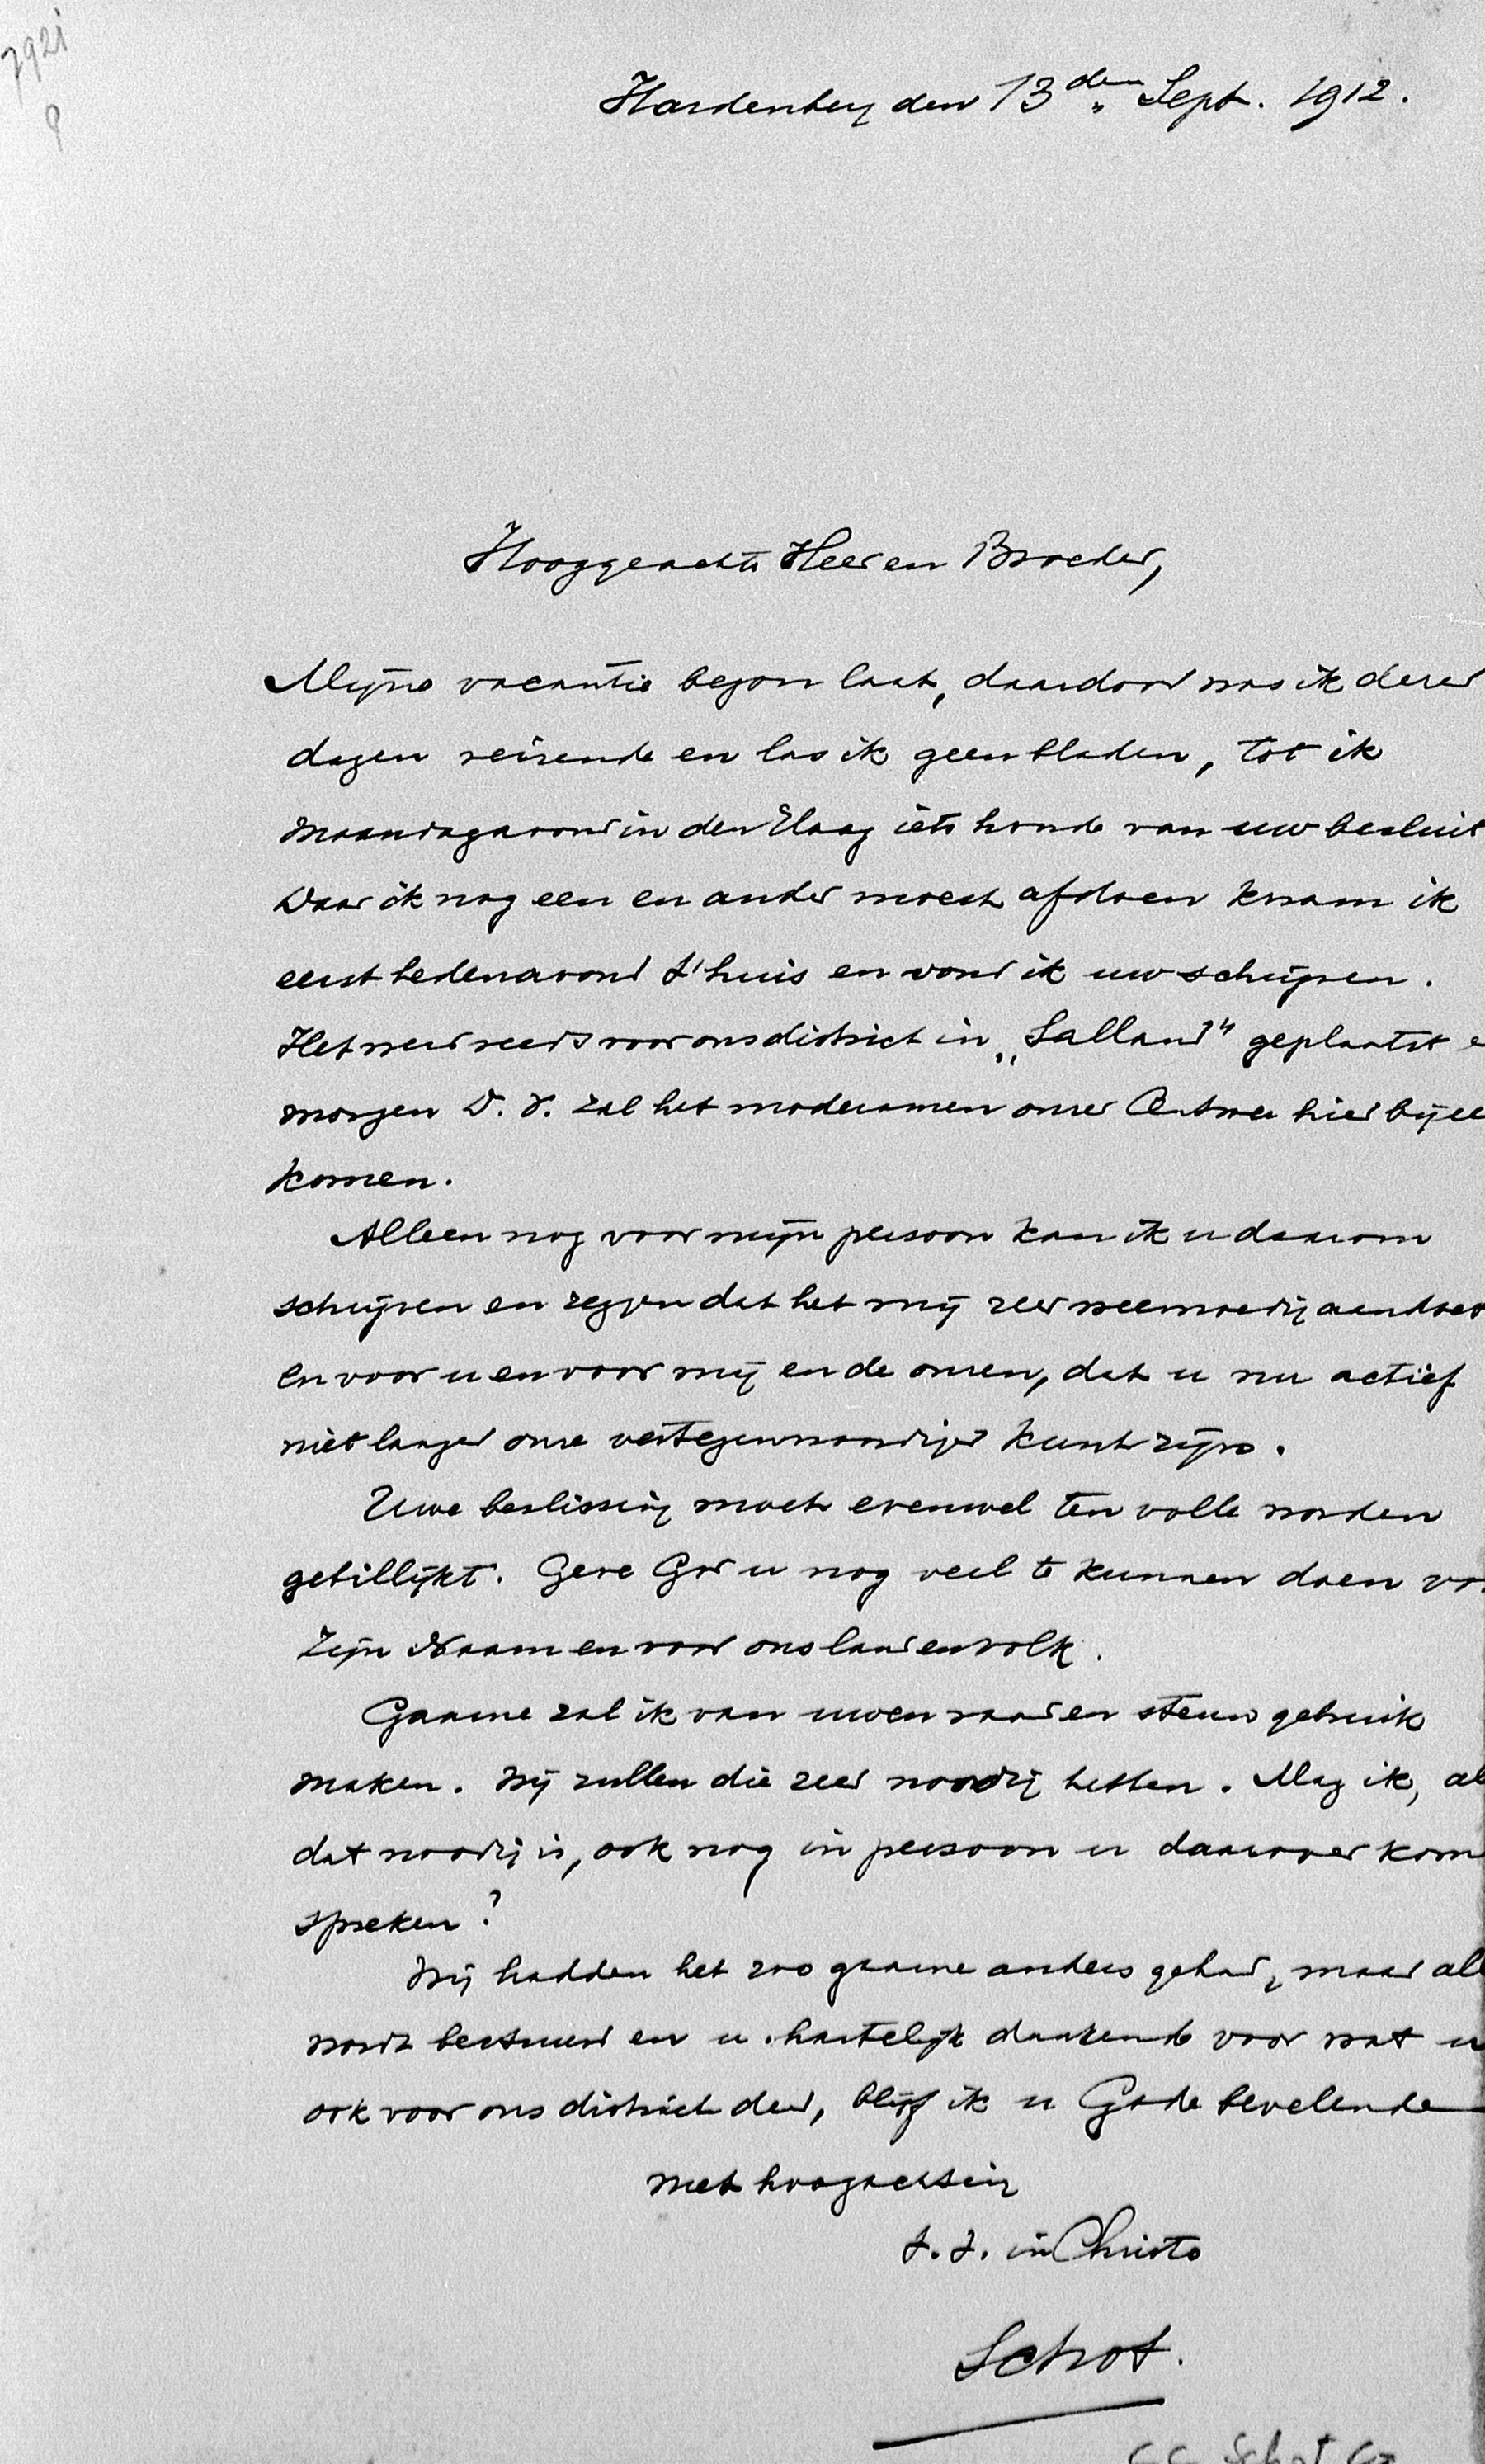 7921
Hardenberg den 13den Sept. 1912.
Hooggeachte Heer en Broeder,
Mijne vacantie begon laat, daardoor was ik dezer
dagen reizende en las ik geen bladen, tot ik
Maandagavond in den Haag iets hoorde van uw besluit
Daar ik nog een en ander moest afdoen kwam ik
eerst hedenavond t'huis en vond ik uw schrijven.
Het werd reeds voor ons district in „Salland" geplaatst e
morgen D.V. zal het moderamen onzer Centrale hier bijee
komen.
Alleen nog voor mijn persoon kan ik u daarom
schrijven en zeggen dat het mij zeer weemoedig aandoet
en voor u en voor mij en de onzen, dat u nu actief
niet langer onze vertegenwoordiger kunt zijn.
Uwe beslissing moet evenwel ten volle worden
gebillijkt. Geve God u nog veel te kunnen doen vo
Zijn Naam en voor ons land en volk.
Gaarne zal ik van uwen raad en steun gebruik
maken. Wij zullen die zeer noodig hebben. Mag ik, al
dat noodig is, ook nog in persoon u daarover kom
spreken?
Wij hadden het zoo gaarne anders gehad, maar al
wordt bestuurd en u hartelijk dankende voor wat u
ook voor ons district deed, blijf ik u Gode bevelende
met hoogachting
t.t. in Christo
Schot.
Schot